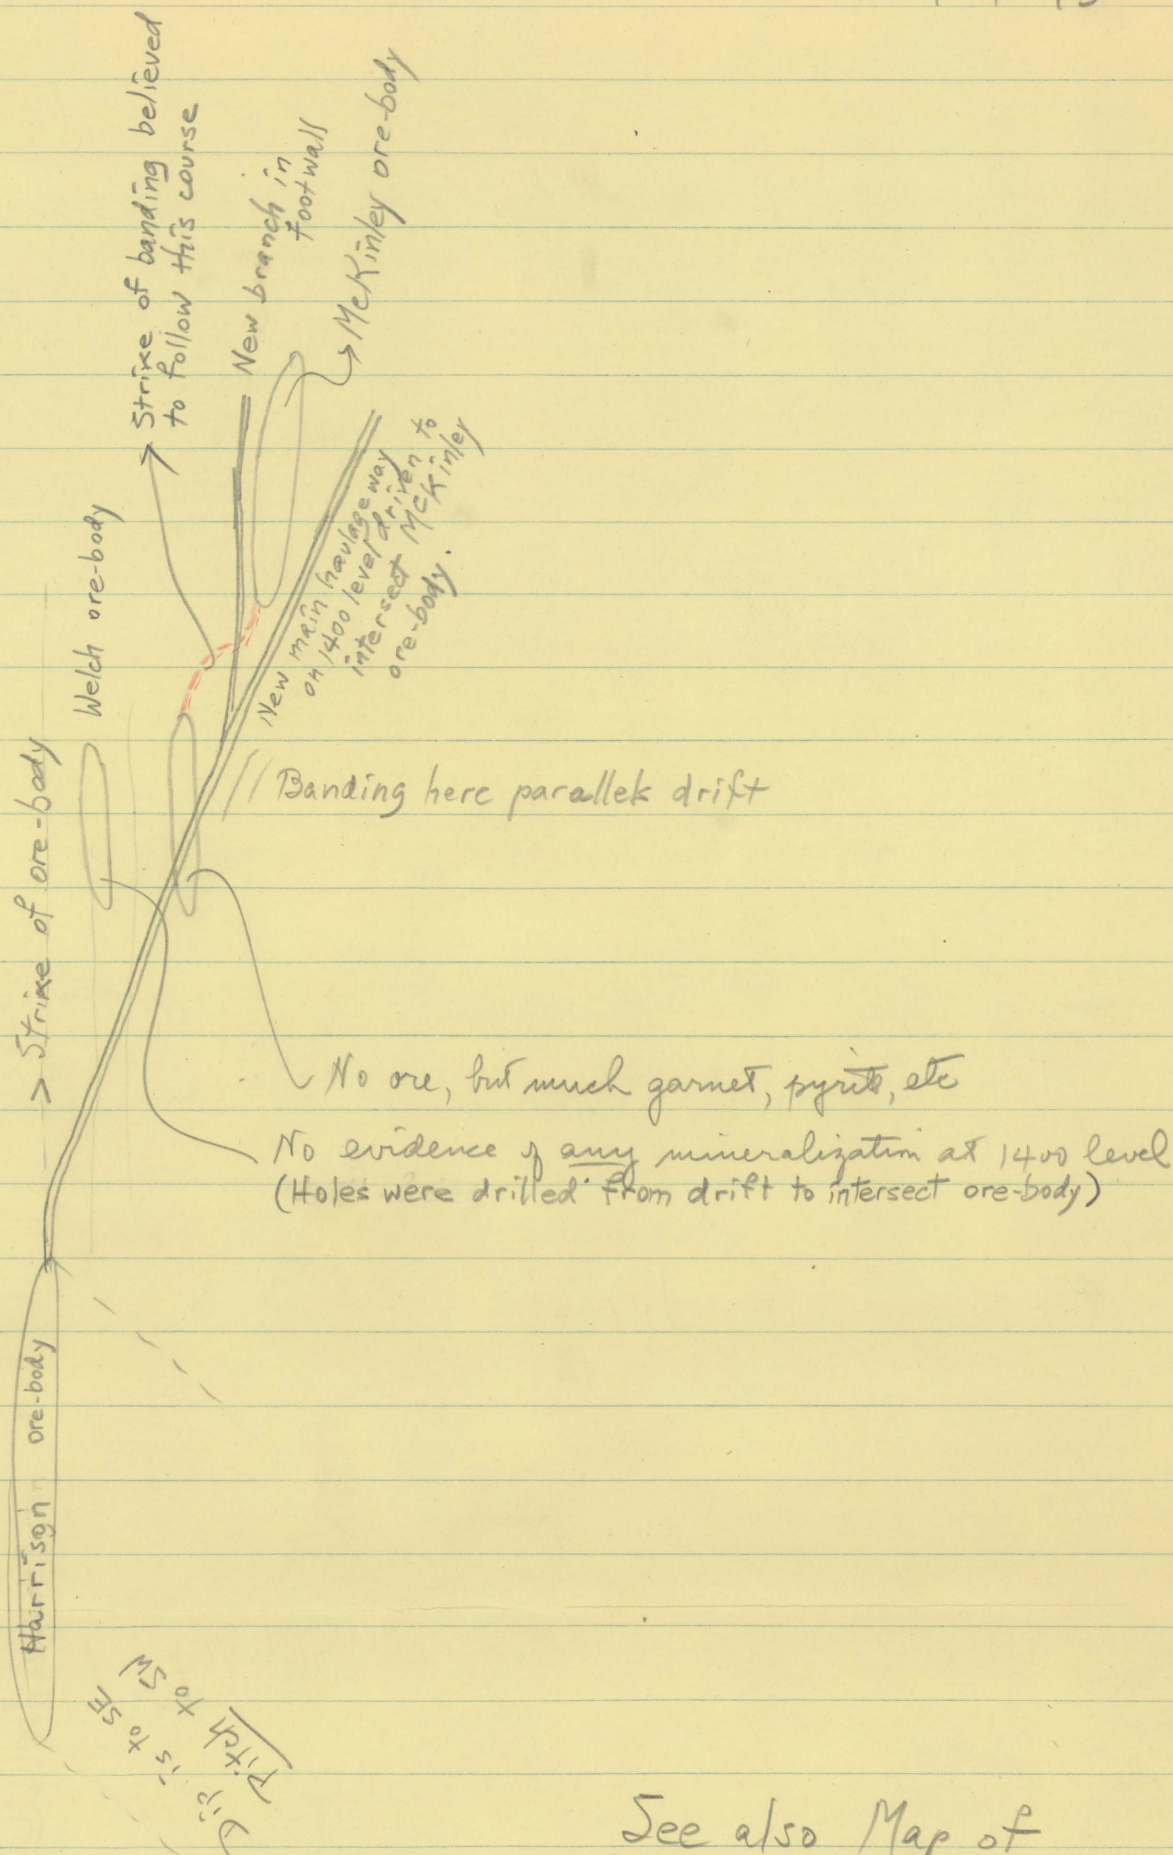 Strike of banding believed
to follow this course
New branch in
footwall
McKinley ore-body
Welch ore-body
New main haulageway
on 1400 level driven to
intersect McKinley
ore-body.
Strike of ore-body
Banding here parallels drift
No ore, but much garnet, pyrite, etc
No evidence of any mineralization at 1400 level
(Holes were drilled from drift to intersect ore-body)
Harrison ore-body
Dip is to SE
Pitch to SW
See also Map of